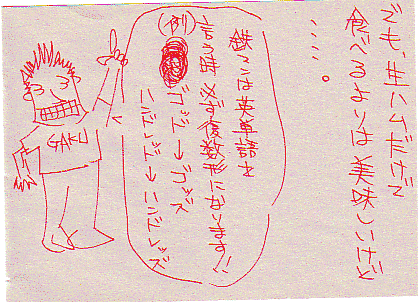 でも、生ハムだけで
食べるよりは美味しいけど
・・・・。
鉄マンは英単語を
言う時 必ず複数形になります!!
(例)
ゴッド→ゴッズ
ハンドレッド→ハンドレッズ
GAKU